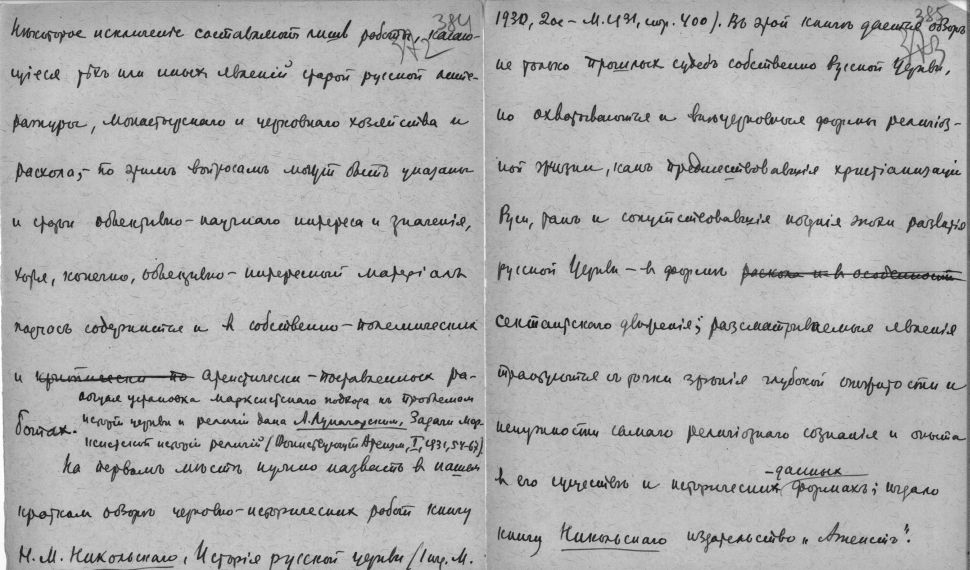 384
372
Нѣкоторое исключеніе составляютъ лишь работы, касаю-
щіеся тѣхъ или иныхъ явленій старой русской лите-
ратуры, монастырскаго и церковнаго хозяйства и
раскола; по этимъ вопросамъ могутъ быть указаны
и статьи объективно-научнаго интереса и значенія,
хотя, конечно, объективно-интересный матеріалъ
подчасъ содержится и въ собственно-полемическихъ
и критически по атеистически-поставленныхъ ра-
ботахъ.
общая установка марксистскаго подхода къ проблемам
исторіи церкви и религіи дана А. Луначарскимъ, Задачи мар-
ксистской исторіи религій (Воинствующій Атеизм, I, 1931, 54-67)
На первомъ мѣстѣ нужно назвать въ нашем
краткомъ обзорѣ церковно-историческихъ работъ книгу
Н. М. Никольскаго, Исторія русской церкви (1 изд. М.
385
373
1930, 2ое - М. 1931, стр. 400). Въ этой книгѣ дается обзоръ
не только прошлыхъ судебъ собственно Русской Церкви,
но охватываются и внѣцерковныя формы религіоз-
ной жизни, какъ предшествовавшія христіанизаціи
Руси, такъ и сопутствовавшія позднія эпохи развитія
русской Церкви - въ формѣ раскола и въ особенности
сектантскаго движенія; разсматриваемыя явленія
трактуются съ точки зрѣнія глубокой отжитости и
ненужности самаго религіознаго сознанія и опыта
въ его существѣ и историческихъ -данныхъ формахъ; издало
книгу Никольскаго издательство „Атеистъ".